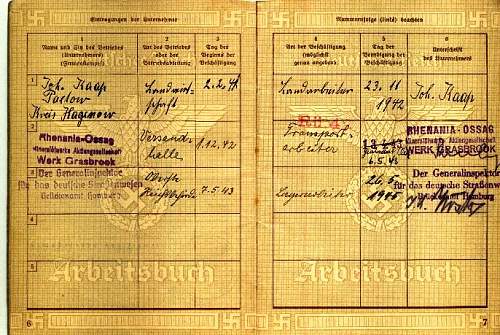 Eintragungen der Unternehmer
1
Name und Sitz des Betriebes
(Unternehmer)
(Firmenstempel)
2
Art des Betriebes oder
der Betriebsabteilung
3
Tag des
Beginns der
Beschäftigung
1
Joh. Kaap
Kreis Hagenow
Landwirt-
schaft
2.2.41
Rhenania-Ossag
Mineralölwerke Aktiengesellschaft
Werk Grasbrook
Versand-
halle
1.12.42
3
Der Generalinspektor
für das deutsche Straßenwesen
Brückenamt Hamburg
Oberste
7.5.43
4
5
Arbeitsbuch
6
Nummernfolge (links) beachten
4
Art der Beschäftigung
(möglichst
genau angeben)
5
Tag der
Beendigung der
Beschäftigung
6
Unterschrift
des Unternehmers
Landarbeiter
23.11
1942
Joh. Kaap
Transport-
arbeiter
6.5.43
RHENANIA-OSSAG
Mineralölwerke Aktiengesellschaft
WERK GRASBROOK
Lagerarbeiter
26.5
1945
Der Generalinspektor
für das deutsche Straßenw
Brückenamt Hamburg
Arbeitsbuch
7